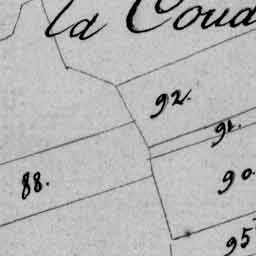 la Coud
92.
91.
88.
90.
95